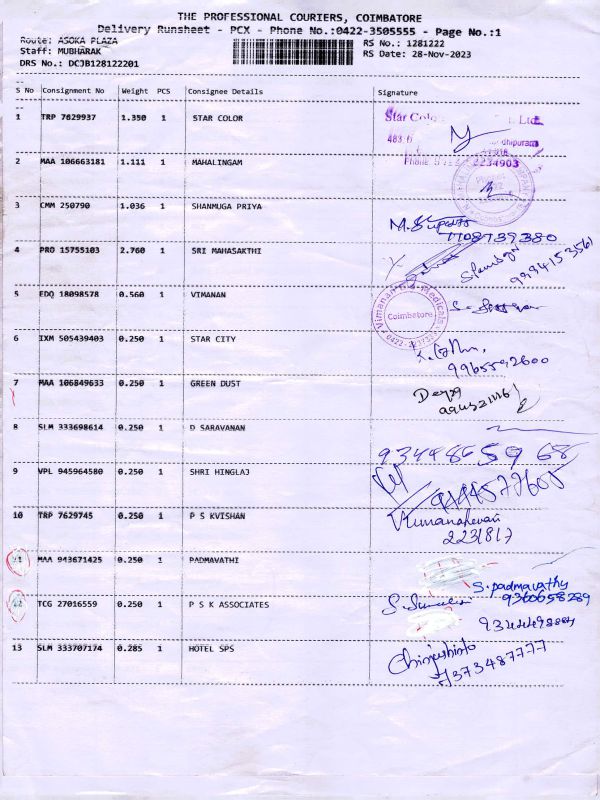 THE PROFESSIONAL COURIERS, COIMBATORE
Delivery Runsheet - PCX - Phone No.:0422-3505555 - Page No.:1
Route: ASOKA PLAZA
RS No.: 1281222
Staff: MUBHARAK
RS Date: 28-Nov-2023
DRS No.: DCJB128122201
S No Consignment No Weight PCS Consignee Details Signature
1 TRP 7629937 1.350 1 STAR COLOR
Star Colo Ltd.
Phone 2234903
2 MAA 106663181 1.111 1 MAHALINGAM
3 CMM 250790 1.036 1 SHANMUGA PRIYA
7708739380
4 PRO 15755103 2.760 1 SRI MAHASAKTHI
9994153561
5 EDQ 18098578 0.560 1 VIMANAN
Vimanan Medicals
Coimbatore
6 IXM 505439403 0.250 1 STAR CITY
9965592600
7 MAA 106849633 0.250 1 GREEN DUST
8 SLM 333698614 0.250 1 D SARAVANAN
9344865968
9 VPL 945964580 0.250 1 SHRI HINGLAJ
9444577605
10 TRP 7629745 0.250 1 P S KVISHAN
2231817
11 MAA 943671425 0.250 1 PADMAVATHI
S.padmavathy
9360658289
12 TCG 27016559 0.250 1 P S K ASSOCIATES
13 SLM 333707174 0.285 1 HOTEL SPS
7373487777